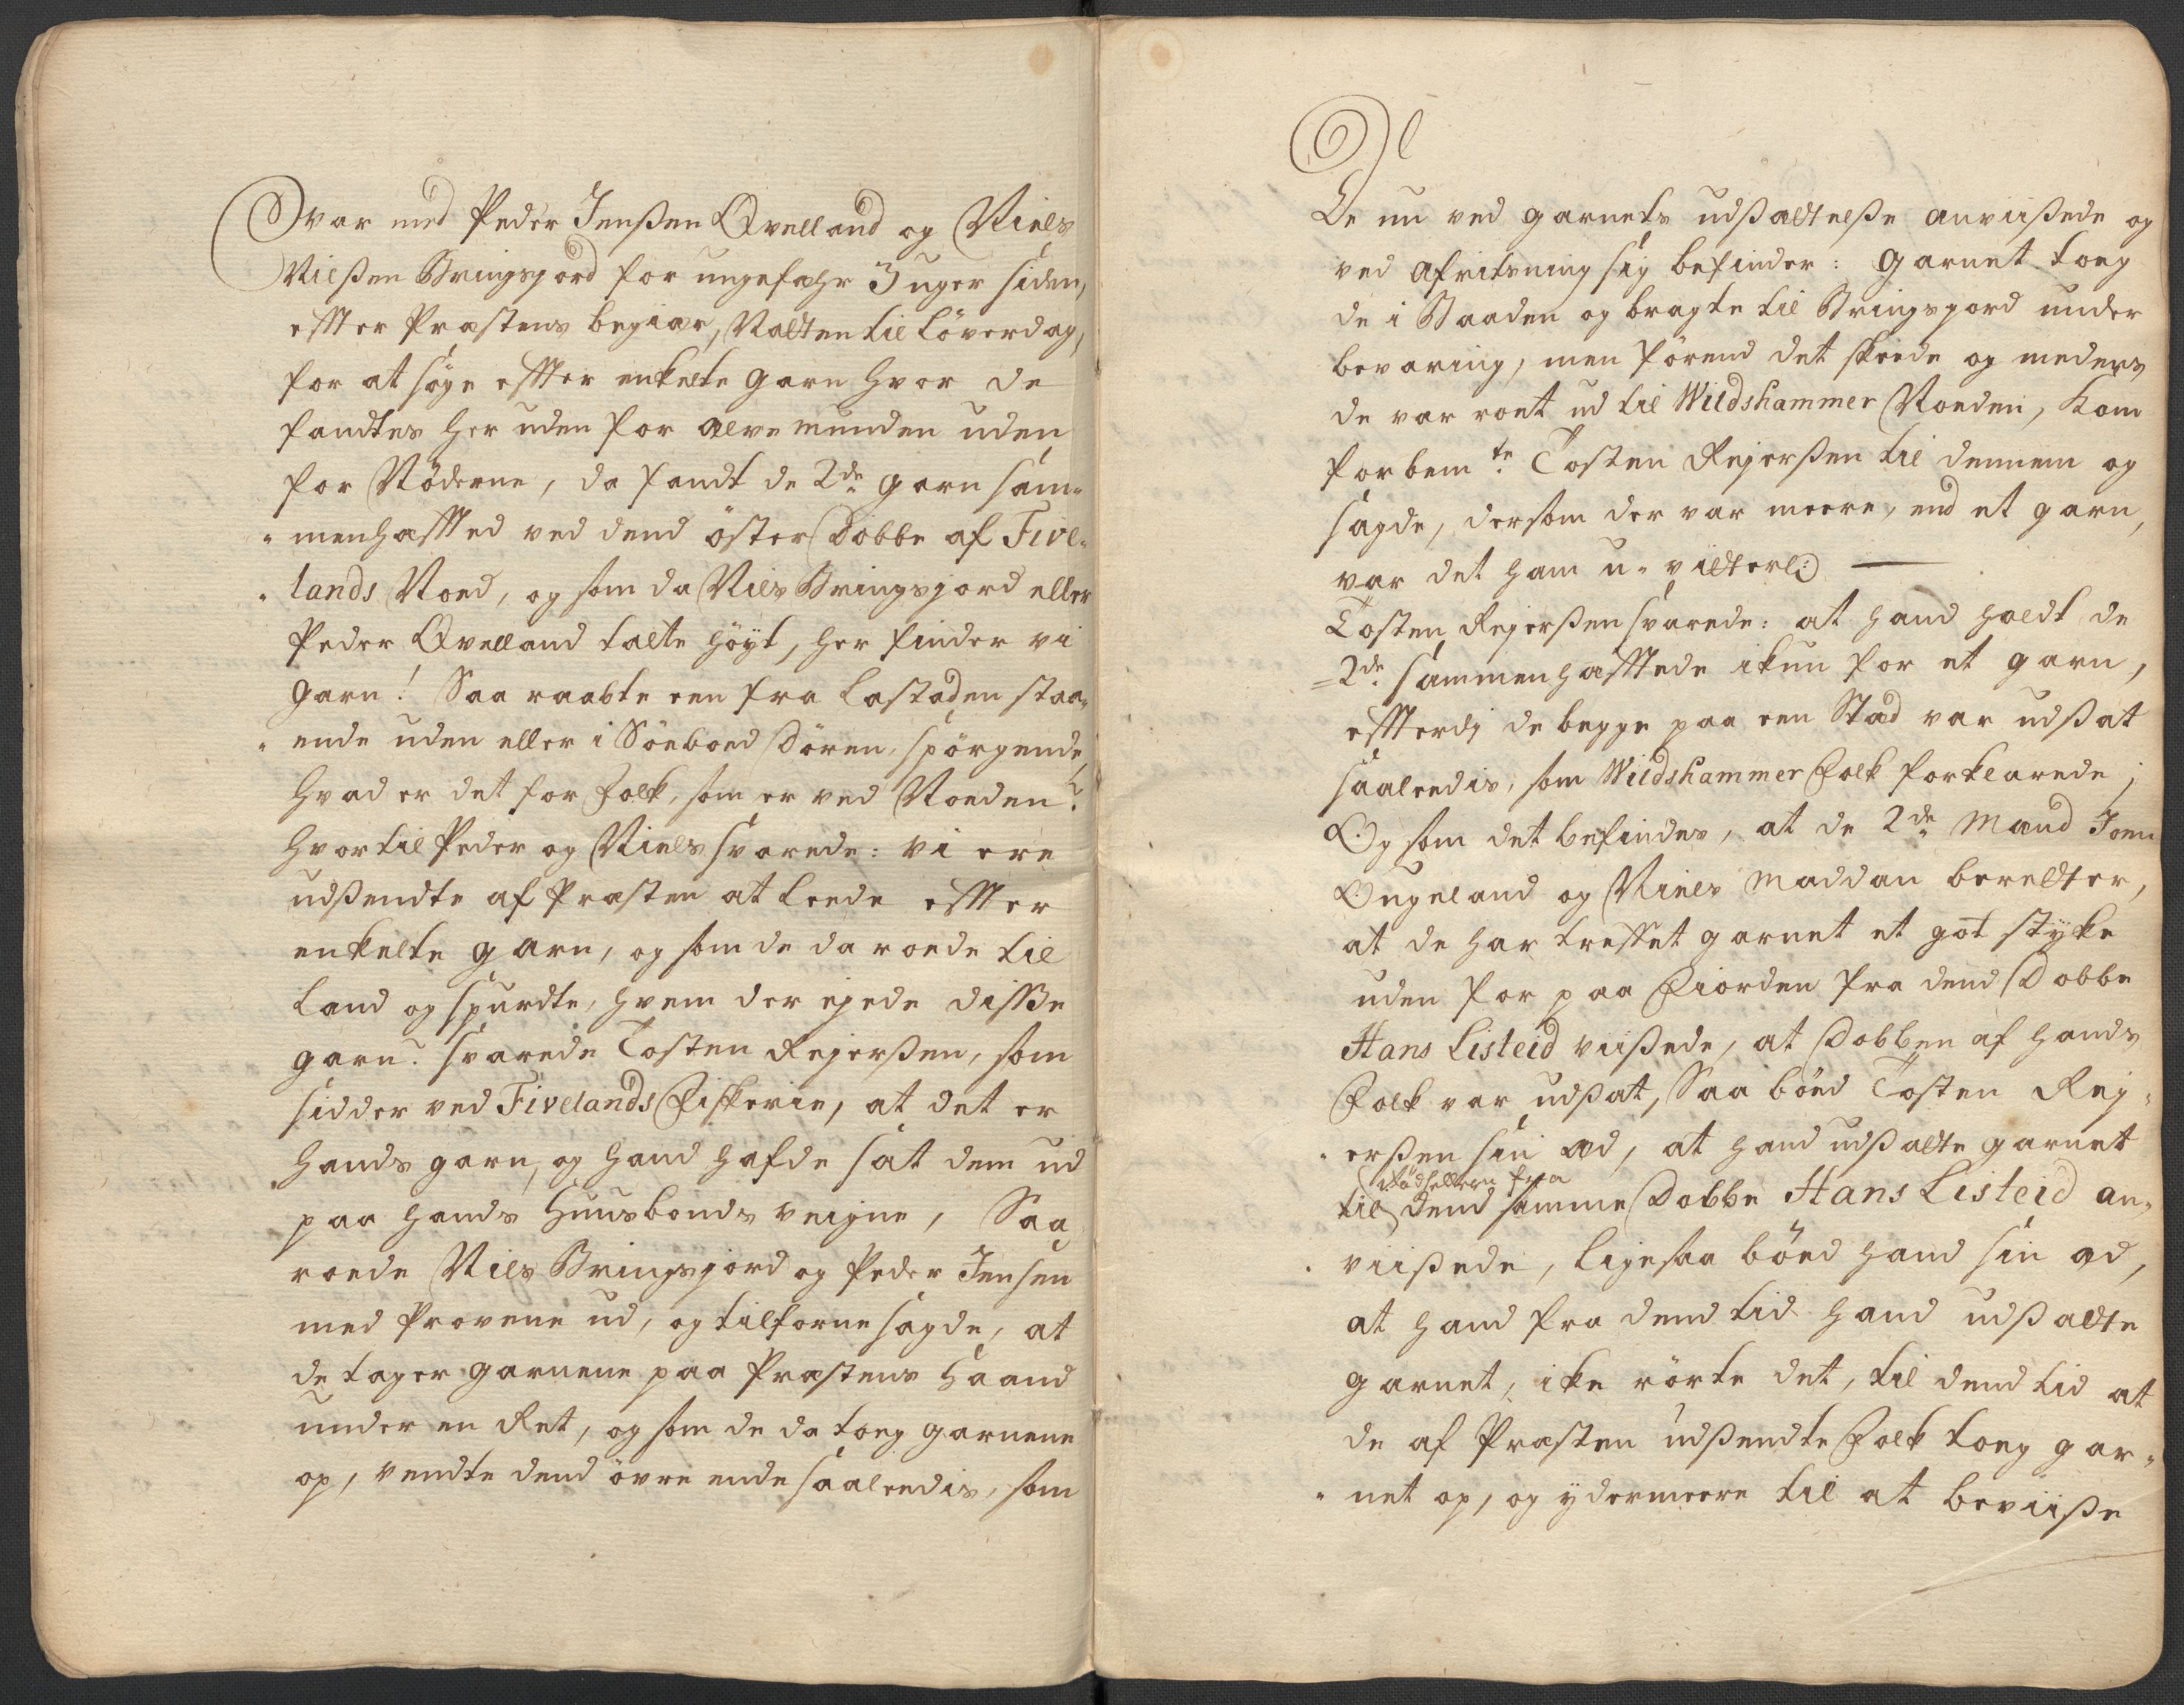 var med Peder Jenßen Qvelland og Niels
Nilßen Bringsjord for ungefæhr 3 uger siden,
effter Præstens begiær, Natten til Löverdag,
for at söge effter enkelte garn hvor de
fandtes her uden for Elvemunden uden
for Nöderne, da fandt de 2de garn sam-
menhæfted ved dend öster Dobbe af Five-
lands Noed, og som da Nils Bringsjord eller
Peder Qvelland talte höyt, her finder vi
garn! Saa raabte een fra Lastaden staa-
ende uden eller i Söeboed Dören, spörgende,
hvad er det for Folk, som er ved Noeden?
hvortil Peder og Niels svarede: vi ere
udßendte af Præsten at leede effter
enkelte garn, og som de da roede til
Land og spurdte, hvem der ejede disße
garn? svarede Tosten Rejerßen, som
sidder ved Fivelands Fiskerie, at det er
hands garn, og hand hafde sat dem ud
paa hands Huusbonds veigne, Saa
roede Nils Bringsjord og Peder Jensen
med Provene ud, og tilforne sagde, at
de tager garnene paa Præstens Haand
under en Ret, og som de da toeg garnene
op, vendte dend övre ende saaleedis, som
De nu ved garnets udßættelße anviißede og
ved afritsning sig befinder: garnet toeg
de i Baaden og bragte til Bringsjord under
bevaring, men förend det skeede og medens
de var roet ud til Wildshammer Noeden, kom
forbemte Tosten Rejerßen til dennem og
sagde, dersom der var meere, end et garn,
var det ham u-vitterl:
Tosten Rejerßen svarede: at hand holdt de
2de sammenhæfftede ikun for et garn,
effterdj de begge paa een Stæd var udßat
saaleedis, som Wildshammer Folk forklarede;
Og som det befindes, at de 2de Mænd Joen
Ougeland og Niels Maddan beretter,
at de har treffet garnet et got stÿke
uden for paa Fiorden fra dend Dobbe
Hans Listeid viißede, at Dobben af hands
Folk var udßat, Saa böed Tosten Rej-
erßen sin æd, at hand udßatte garnet
fra
til dend samme Dobbe Hans Listeid an-
viißede, ligesaa böed hand sin æd,
at hand fra dend tid hand udßatte
garnet, ike rörte det, til dend tid at
de af Præsten udßendte Folk toeg gar-
net op, og ÿdermeere til at beviiße